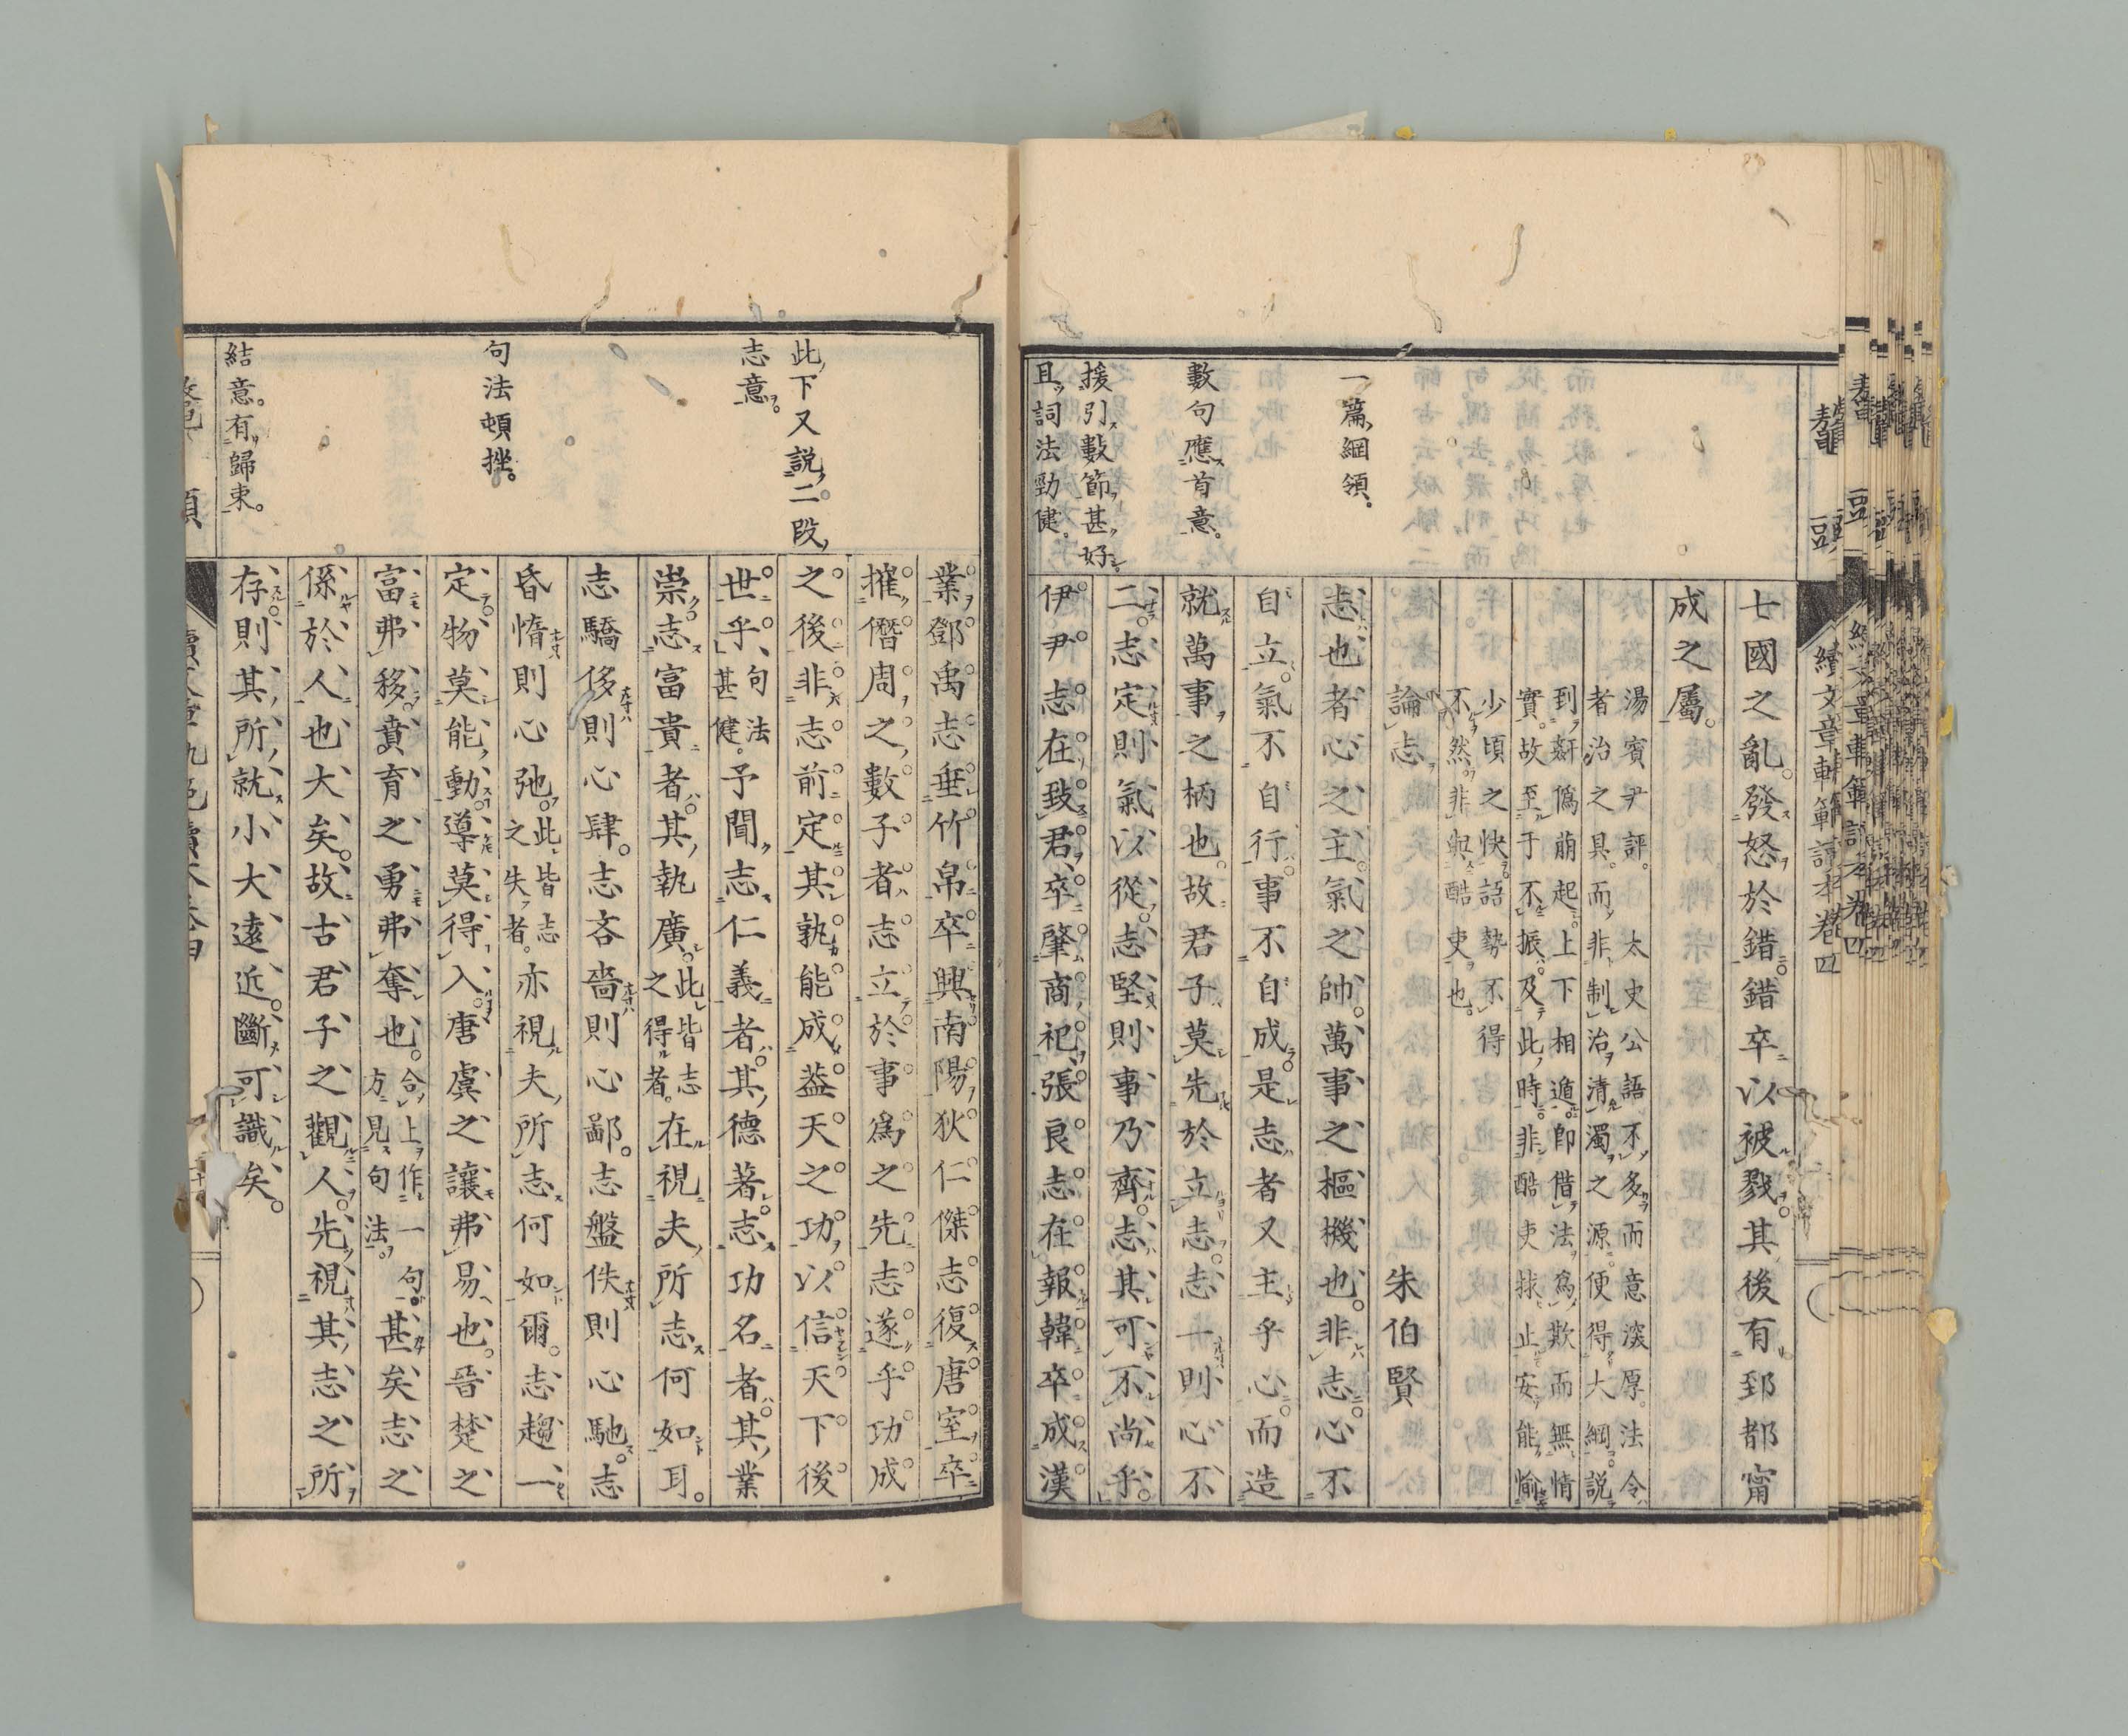 鼇頭
續文章軌範讀本卷四
七國之亂。發怒於錯。錯卒以被戮。其後有郅都甯
成之屬。
湯賓尹評。太史公語不多而意深厚。法令
者治之具。而非制治清濁之源。便得大綱。説
到姦僞萠起。上下相遁。即借法爲欺而無情
實。故至于不振。及此時。非酷吏抹止。安能愉
少頃之快。語勢不得
不然。非與酷吏也。
論志
朱伯賢
一篇綱領。
志也者心之主。氣之帥。萬事之樞機也。非志。心不
自立。氣不自行。事不自成。是志者又主乎心。而造
數句應首意。
就萬事之柄也。故君子莫先於立志。志一則心不
援引數節甚好。
二。志定則氣以從。志堅則事乃齊。志其可不尚乎。
且詞法勁健。
伊尹志在致君。卒肇商祀。張良志在報韓。卒成漢
業。鄧禹志垂竹帛。卒興南陽。狄仁傑志復唐室。卒
摧僭周。之數子者。志立於事爲之先。志遂乎功成
此下又説二段
之後。非志前定。其孰能成葢天之功。以信天下後
志意。
世乎。句法甚健。予間志仁義者。其德著。志功名者。其業
崇。志富貴者。其執廣。此皆志之得者。在視夫所志何如耳。
志驕侈則心肆。志吝嗇則心鄙。志盤佚則心馳。志
句法頓挫。
昏惰則心弛。此皆志之失者。亦視夫所志何如爾。志趨一
定。物莫能動。導莫得入。唐虞之讓弗易也。晉楚之
富弗移。賁育之勇弗奪也。合上作一句。方見句法。甚矣志之
係於人也大矣。故古君子之觀人。先視其志之所
結意。有歸束。
存。則其所就小大遠近。斷可識矣。